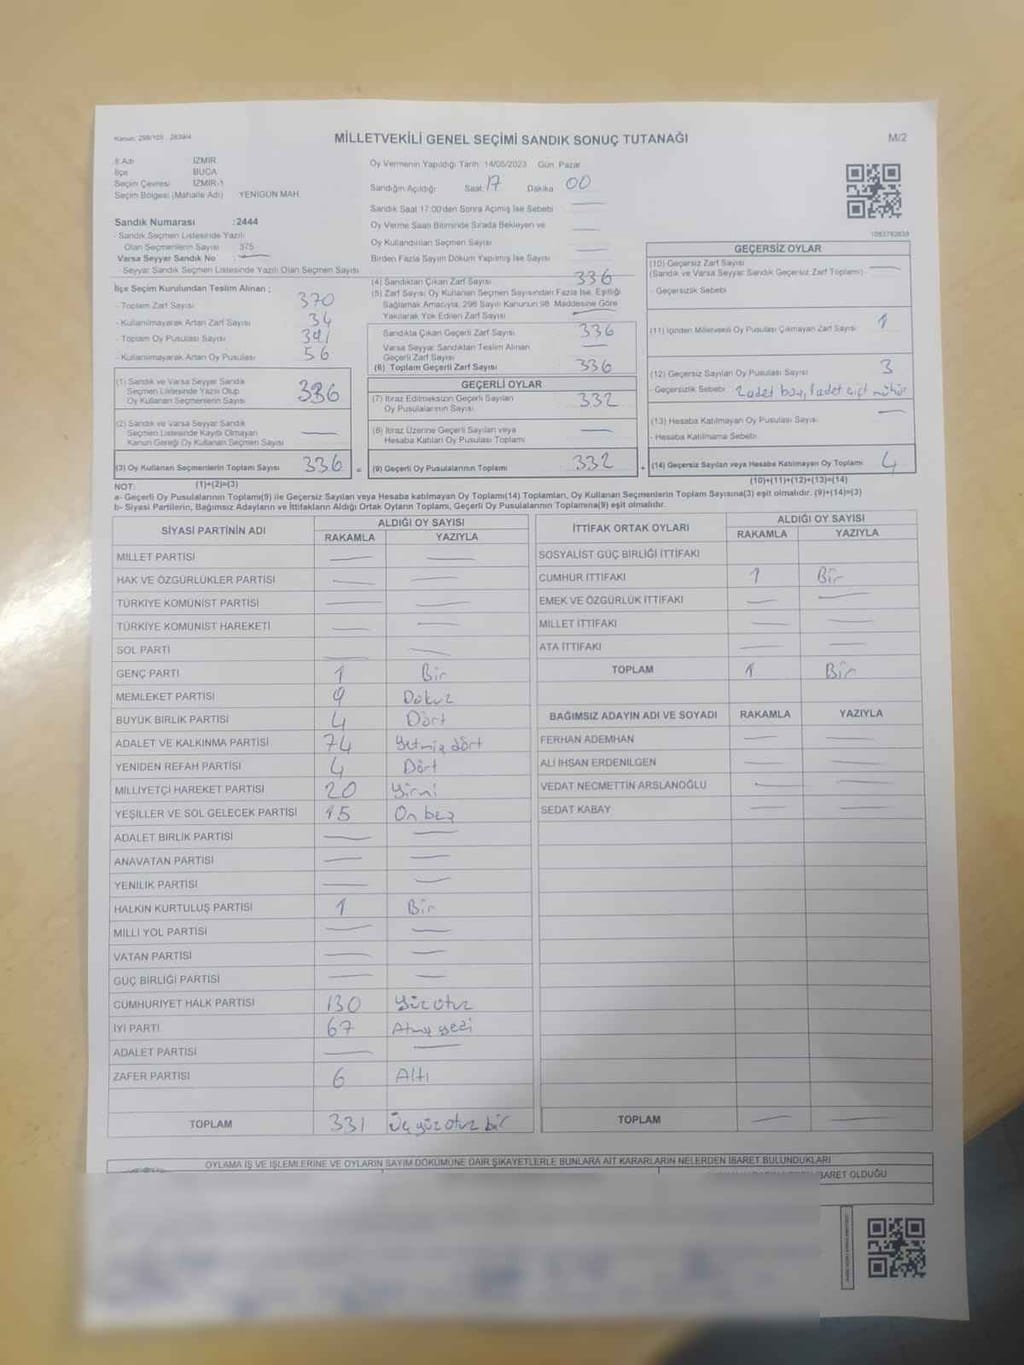 Kanun: 298/105 2839/4
MİLLETVEKİLİ GENEL SEÇİMİ SANDIK SONUÇ TUTANAĞI
M/2
İl Adı İZMİR
İlçe BUCA
Seçim Çevresi İZMİR-1
Seçim Bölgesi (Mahalle Adı) YENİGÜN MAH.
Sandık Numarası :2444
- Sandık Seçmen Listesinde Yazılı
Olan Seçmenlerin Sayısı 375
Varsa Seyyar Sandık No
Seyyar Sandık Seçmen Listesinde Yazılı Olan Seçmen Sayısı
İlçe Seçim Kurulundan Teslim Alınan ;
- Toplam Zarf Sayısı 370
- Kullanılmayarak Artan Zarf Sayısı 34
- Toplam Oy Pusulası Sayısı
- Kullanılmayarak Artan Oy Pusulası 56
(1) Sandık ve Varsa Seyyar Sandık
Seçmen Listesinde Yazılı Olup
Oy Kullanan Seçmenlerin Sayısı 336
(2) Sandık ve Varsa Seyyar Sandık
Seçmen Listesinde Kayıtlı Olmayan
Kanun Gereği Oy Kullanan Seçmen Sayısı
(3) Oy Kullanan Seçmenlerin Toplam Sayısı 336
Oy Vermenin Yapıldığı Tarih 14/05/2023 Gün Pazar
Sandığın Açıldığı Saat 17 Dakika 00
Sandık Saat 17:00'den Sonra Açılmış İse Sebebi
Oy Verme Saati Bitiminde Sırada Bekleyen ve
Oy Kullandırılan Seçmen Sayısı
Birden Fazla Sayım Döküm Yapılmış İse Sayısı
(4) Sandıktan Çıkan Zarf Sayısı 336
(5) Zarf Sayısı Oy Kullanan Seçmen Sayısından Fazla İse, Eşitliği
Sağlamak Amacıyla, 298 Sayılı Kanunun 98. Maddesine Göre
Yakılarak Yok Edilen Zarf Sayısı
Sandıkta Çıkan Geçerli Zarf Sayısı 336
Varsa Seyyar Sandıktan Teslim Alınan
Geçerli Zarf Sayısı
(6) Toplam Geçerli Zarf Sayısı 336
GEÇERLİ OYLAR
(7) İtiraz Edilmeksizin Geçerli Sayılan
Oy Pusulalarının Sayısı 332
(8) İtiraz Üzerine Geçerli Sayılan veya
Hesaba Katılan Oy Pusulası Toplamı
= (9) Geçerli Oy Pusulalarının Toplamı 332
1083792839
GEÇERSİZ OYLAR
(10) Geçersiz Zarf Sayısı
(Sandık ve Varsa Seyyar Sandık Geçersiz Zarf Toplamı)
- Geçersizlik Sebebi
(11) İçinden Milletvekili Oy Pusulası Çıkmayan Zarf Sayısı 1
(12) Geçersiz Sayılan Oy Pusulası Sayısı 3
- Geçersizlik Sebebi 2 adet boş, 1 adet çift mühür
(13) Hesaba Katılmayan Oy Pusulası Sayısı
- Hesaba Katılmama Sebebi
+ (14) Geçersiz Sayılan veya Hesaba Katılmayan Oy Toplamı 4
NOT: (1)+(2)=(3) (10)+(11)+(12)+(13)=(14)
a- Geçerli Oy Pusulalarının Toplamı(9) ile Geçersiz Sayılan veya Hesaba katılmayan Oy Toplamı(14) Toplamları, Oy Kullanan Seçmenlerin Toplam Sayısına(3) eşit olmalıdır. (9)+(14)=(3)
b- Siyasi Partilerin, Bağımsız Adayların ve İttifakların Aldığı Ortak Oyların Toplamı, Geçerli Oy Pusulalarının Toplamına(9) eşit olmalıdır.
SİYASİ PARTİNİN ADI ALDIĞI OY SAYISI
RAKAMLA YAZIYLA
MİLLET PARTİSİ
HAK VE ÖZGÜRLÜKLER PARTİSİ
TÜRKİYE KOMÜNİST PARTİSİ
TÜRKİYE KOMÜNİST HAREKETİ
SOL PARTİ
GENÇ PARTİ 1 Bir
MEMLEKET PARTİSİ 9 Dokuz
BÜYÜK BİRLİK PARTİSİ 4 Dört
ADALET VE KALKINMA PARTİSİ 74 Yetmiş dört
YENİDEN REFAH PARTİSİ 4 Dört
MİLLİYETÇİ HAREKET PARTİSİ 20 Yirmi
YEŞİLLER VE SOL GELECEK PARTİSİ 15 On beş
ADALET BİRLİK PARTİSİ
ANAVATAN PARTİSİ
YENİLİK PARTİSİ
HALKIN KURTULUŞ PARTİSİ 1 Bir
MİLLİ YOL PARTİSİ
VATAN PARTİSİ
GÜÇ BİRLİĞİ PARTİSİ
CUMHURİYET HALK PARTİSİ 130 Yüz otuz
İYİ PARTİ 67 Atmış yedi
ADALET PARTİSİ
ZAFER PARTİSİ 6 Altı
TOPLAM 331 Üç yüz otuz bir
İTTİFAK ORTAK OYLARI ALDIĞI OY SAYISI
RAKAMLA YAZIYLA
SOSYALİST GÜÇ BİRLİĞİ İTTİFAKI
CUMHUR İTTİFAKI 1 Bir
EMEK VE ÖZGÜRLÜK İTTİFAKI
MİLLET İTTİFAKI
ATA İTTİFAKI
TOPLAM 1 Bir
BAĞIMSIZ ADAYIN ADI VE SOYADI RAKAMLA YAZIYLA
FERHAN ADEMHAN
ALİ İHSAN ERDENİLGEN
VEDAT NECMETTİN ARSLANOĞLU
SEDAT KABAY
TOPLAM
OYLAMA İŞ VE İŞLEMLERİNE VE OYLARIN SAYIM DÖKÜMÜNE DAİR ŞİKAYETLERLE BUNLARA AİT KARARLARIN NELERDEN İBARET BULUNDUKLARI
BARET OLDUĞU